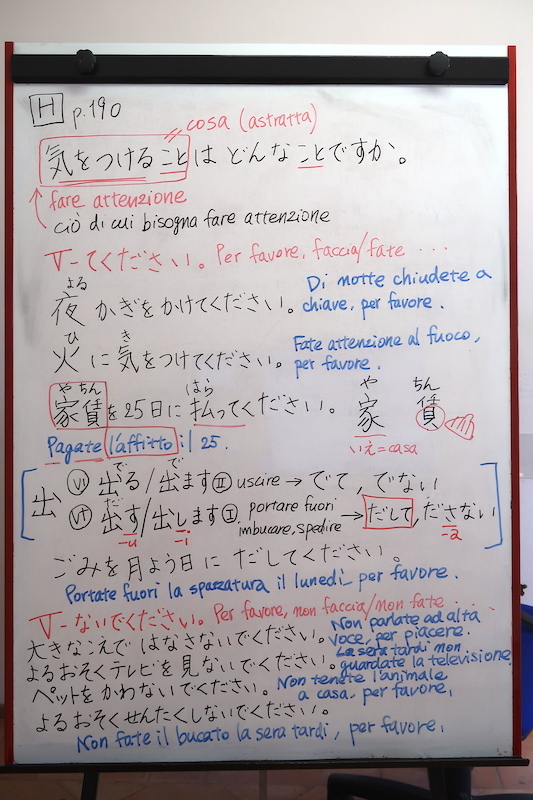 H p.190
cosa (astratta)
気をつけることは どんなことですか。
fare attenzione
ciò di cui bisogna fare attenzione
V-てください。 Per favore, faccia/fate ...
よる
夜 かぎをかけてください。 Di notte chiudete a chiave, per favore.
ひ き
火 に 気をつけてください。 Fate attenzione al fuoco, per favore.
やちん はら や ちん
家賃を25日に 払ってください。 家 賃
いえ=casa
Pagate l'affitto il 25.
で で
出 Vi 出る/出ます II uscire → でて, でない
だ
Vt 出す/出します I portare fuori imbucare, spedire → だして, ださない
-u -i -a
ごみを月よう日に だしてください。
Portate fuori la spazzatura il lunedì per favore.
V-ないでください。 Per favore, non faccia/non fate ...
大きなこえで はなさないでください。 Non parlate ad alta voce, per piacere.
よるおそくテレビを見ないでください。 La sera tardi non guardate la televisione
ペットをかわないでください。 Non tenete l'animale a casa, per favore,
よるおそくせんたくしないでください。
Non fate il bucato la sera tardi, per favore,